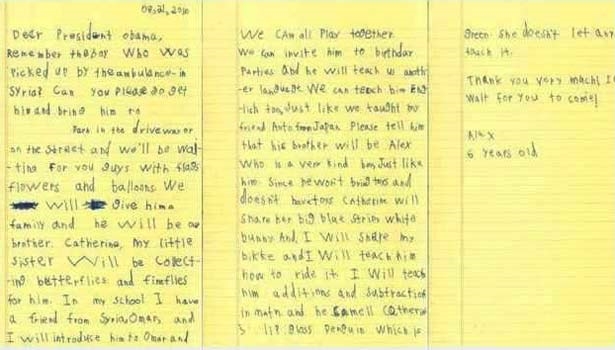 08.21, 2016
Dear President obama,
Remember the boy who was
picked up by the ambulance in
Syria? Can you please go get
him and bring him to
Park in the driveway or
on the street and we'll be wai-
ting for you guys with flags
flowers and balloons. We
will give him a
family and he will be our
brother. Catherine, my little
sister will be collect-
ing butterflies and fireflies
for him. In my school I have
a friend from Syria, Omar, and
I will introduce him to Omar and
We can all play together.
We can invite him to birthday
parties and he will teach us anoth-
er language. We can teach him Eng-
lish too, just like we taught my
friend Aoto from Japan. Please tell him
that his brother will be Alex
who is a very kind boy, just like
him. Since he won't bring toys and
doesn't have toys Catherine will
share her big blue stripy white
bunny. And I will share my
bike and I will teach him
how to ride it. I will teach
him additions and subtractions
in math and he smell Catherine'
s lip gloss penguin which is
green. She doesn't let any
touch it.
Thank you very much! I
wait for you to come!
Alex
6 years old